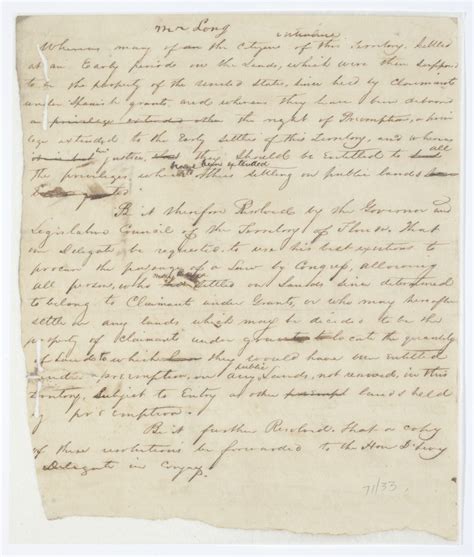 Mr Long
Whereas, many of the Citizens of this Territory, Settled
at an Early periods on the Lands, which were then supposed
to be the property of the United States, Since held by Claimants
under Spanish grants, and whereas they have been debared
privilege extended other the right of Preemption, a privi
lege extended to the Early Settlers of this Territory, and whereas
justice, they should be entitled to all
the privileges, which have been extended to others settling on public lands
Be it therefore Resolved by the Governor and
Legislative Council of the Territory of Florida, That
our Delegate be requested to use his best exertions to
procure the passage of a Law by Congress, allowing
all persons, who Settled on Lands since determined
to belong to Claimants under Grants, or who may hereafter
settle on any lands which may be decided to be the
property of Claimants under grants to locate the quantity
of land to which they would have been entitled
under preemption, on any public Lands, not reserved, in this
Territory, Subject to Entry as other lands held
by preemption.
Be it further Resolved. That a copy
of these resolutions be forwarded to the Hon D. Levy
Delegate in Congress
71/33